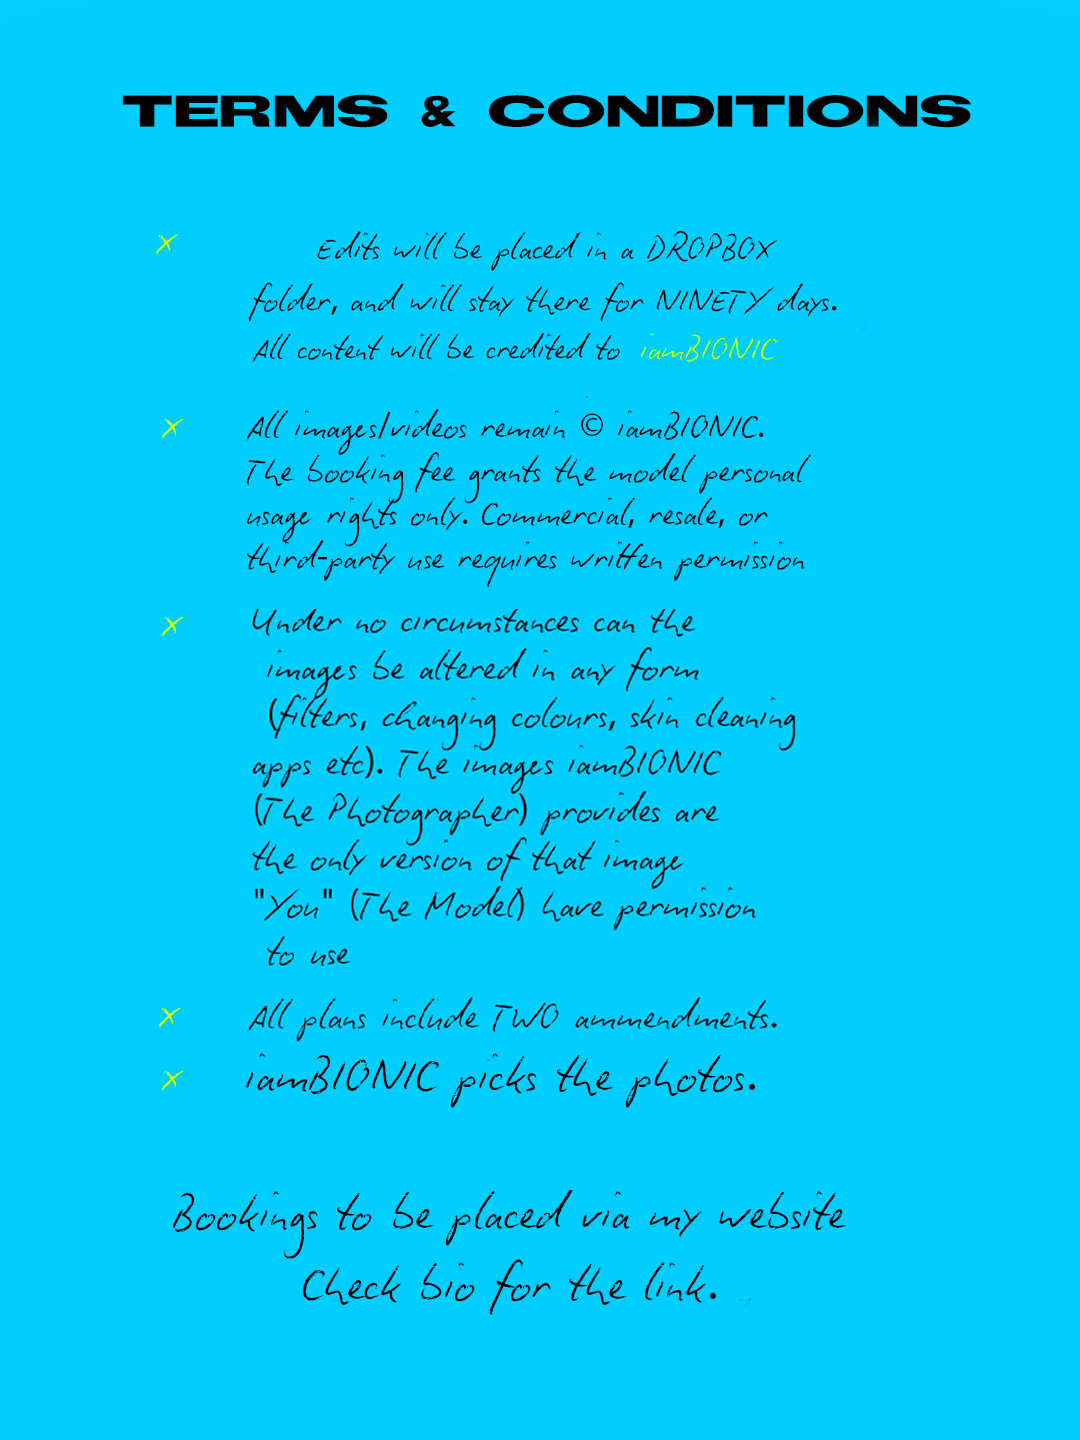 TERMS & CONDITIONS
x Edits will be placed in a DROPBOX
folder, and will stay there for NINETY days.
All content will be credited to iamBIONIC
x All images/videos remain © iamBIONIC.
The booking fee grants the model personal
usage rights only. Commercial, resale, or
third-party use requires written permission
x Under no circumstances can the
images be altered in any form
(filters, changing colours, skin cleaning
apps etc). The images iamBIONIC
(The Photographer) provides are
the only version of that image
"You" (The Model) have permission
to use
x All plans include TWO ammendments.
x iamBIONIC picks the photos.
Bookings to be placed via my website
Check bio for the link.